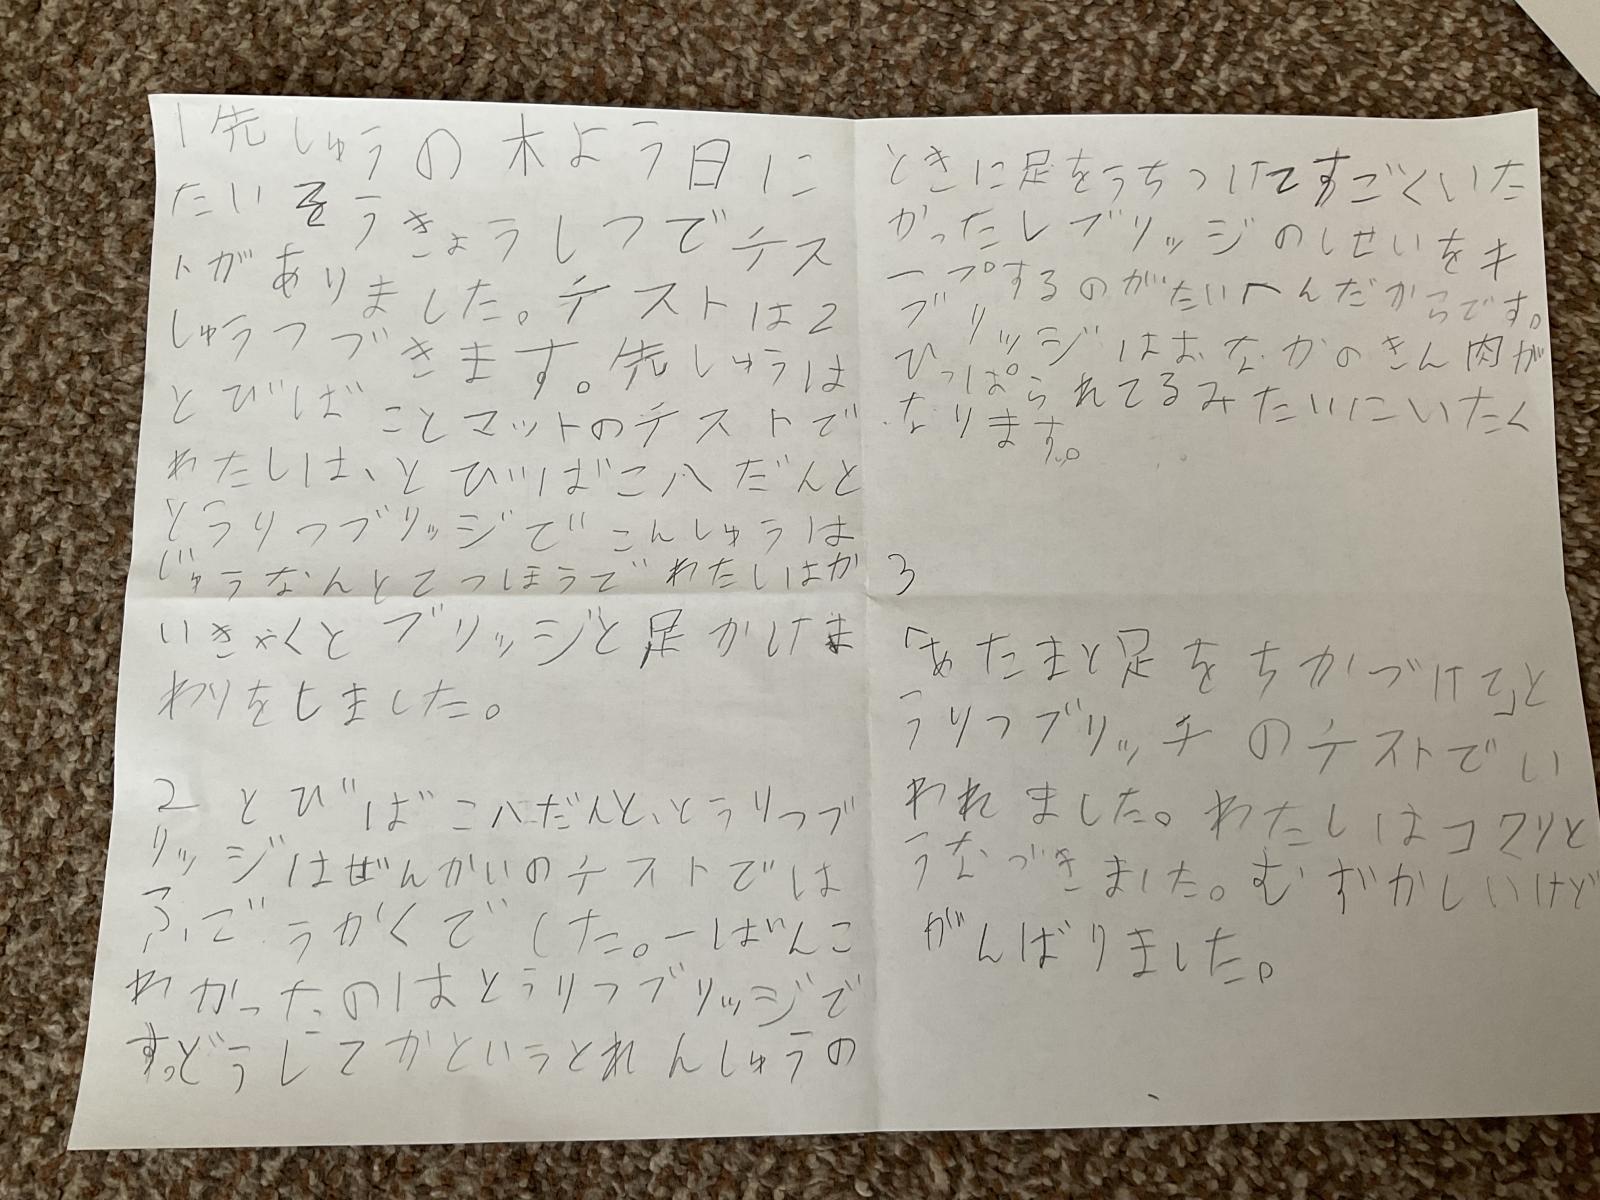 1先しゅうの木よう日に
たいそうきょうしつでテス
トがありました。テストは2
しゅうつづきます。先しゅうは
とびばことマットのテストで
わたしは、とびばこ八だんと
とうりつブリッジでこんしゅうは
じゅうなんとてつぼうでわたしはか
いきゃくとブリッジと足かけま
わりをしました。
2 とびばこ八だんと、とうりつブ
リッジはぜんかいのテストでは
ふごうかくでした。一ばんこ
わかったのはとうりつブリッジで
す。どうしてかというとれんしゅうの
ときに足をうちつけてすごくいた
かったしブリッジのしせいをキ
ープするのがたいへんだからです。
ブリッジはおなかのきん肉が
ひっぱられてるみたいにいたく
なります。
3
「あたまと足をちかづけて」と
うりつブリッチのテストでい
われました。わたしはコクリと
うなづきました。むずかしいけど
がんばりました。